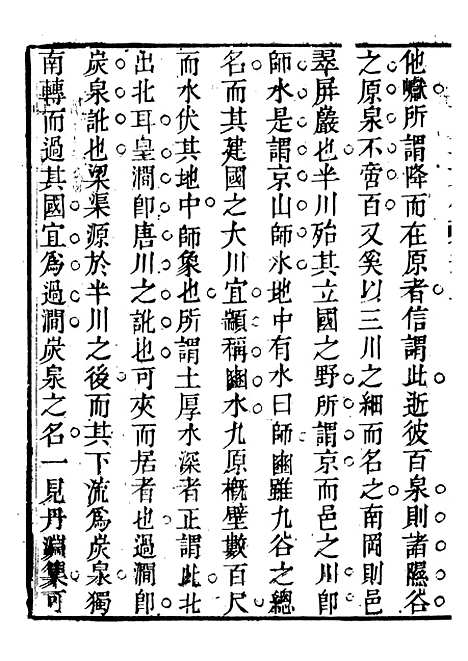 他嶽所謂降而在原者信謂此逝彼百泉則諸隰谷
之原泉不啻百又奚以三川之細而名之南岡則邑
翠屏巖也半川殆其立國之野所謂京而邑之川卽
師水是謂京山師水地中有水曰師豳雖九谷之總
名而其建國之大川宜顓稱豳水九原概壁數百尺
而水伏其地中師象也所謂土厚水深者正謂此北
出北耳皇澗卽唐川之訛也可夾而居者也過澗卽
炭泉訛也梁渠源於半川之後而其下流爲炭泉獨
南轉而過其國宜爲過澗炭泉之名一見丹淵集可